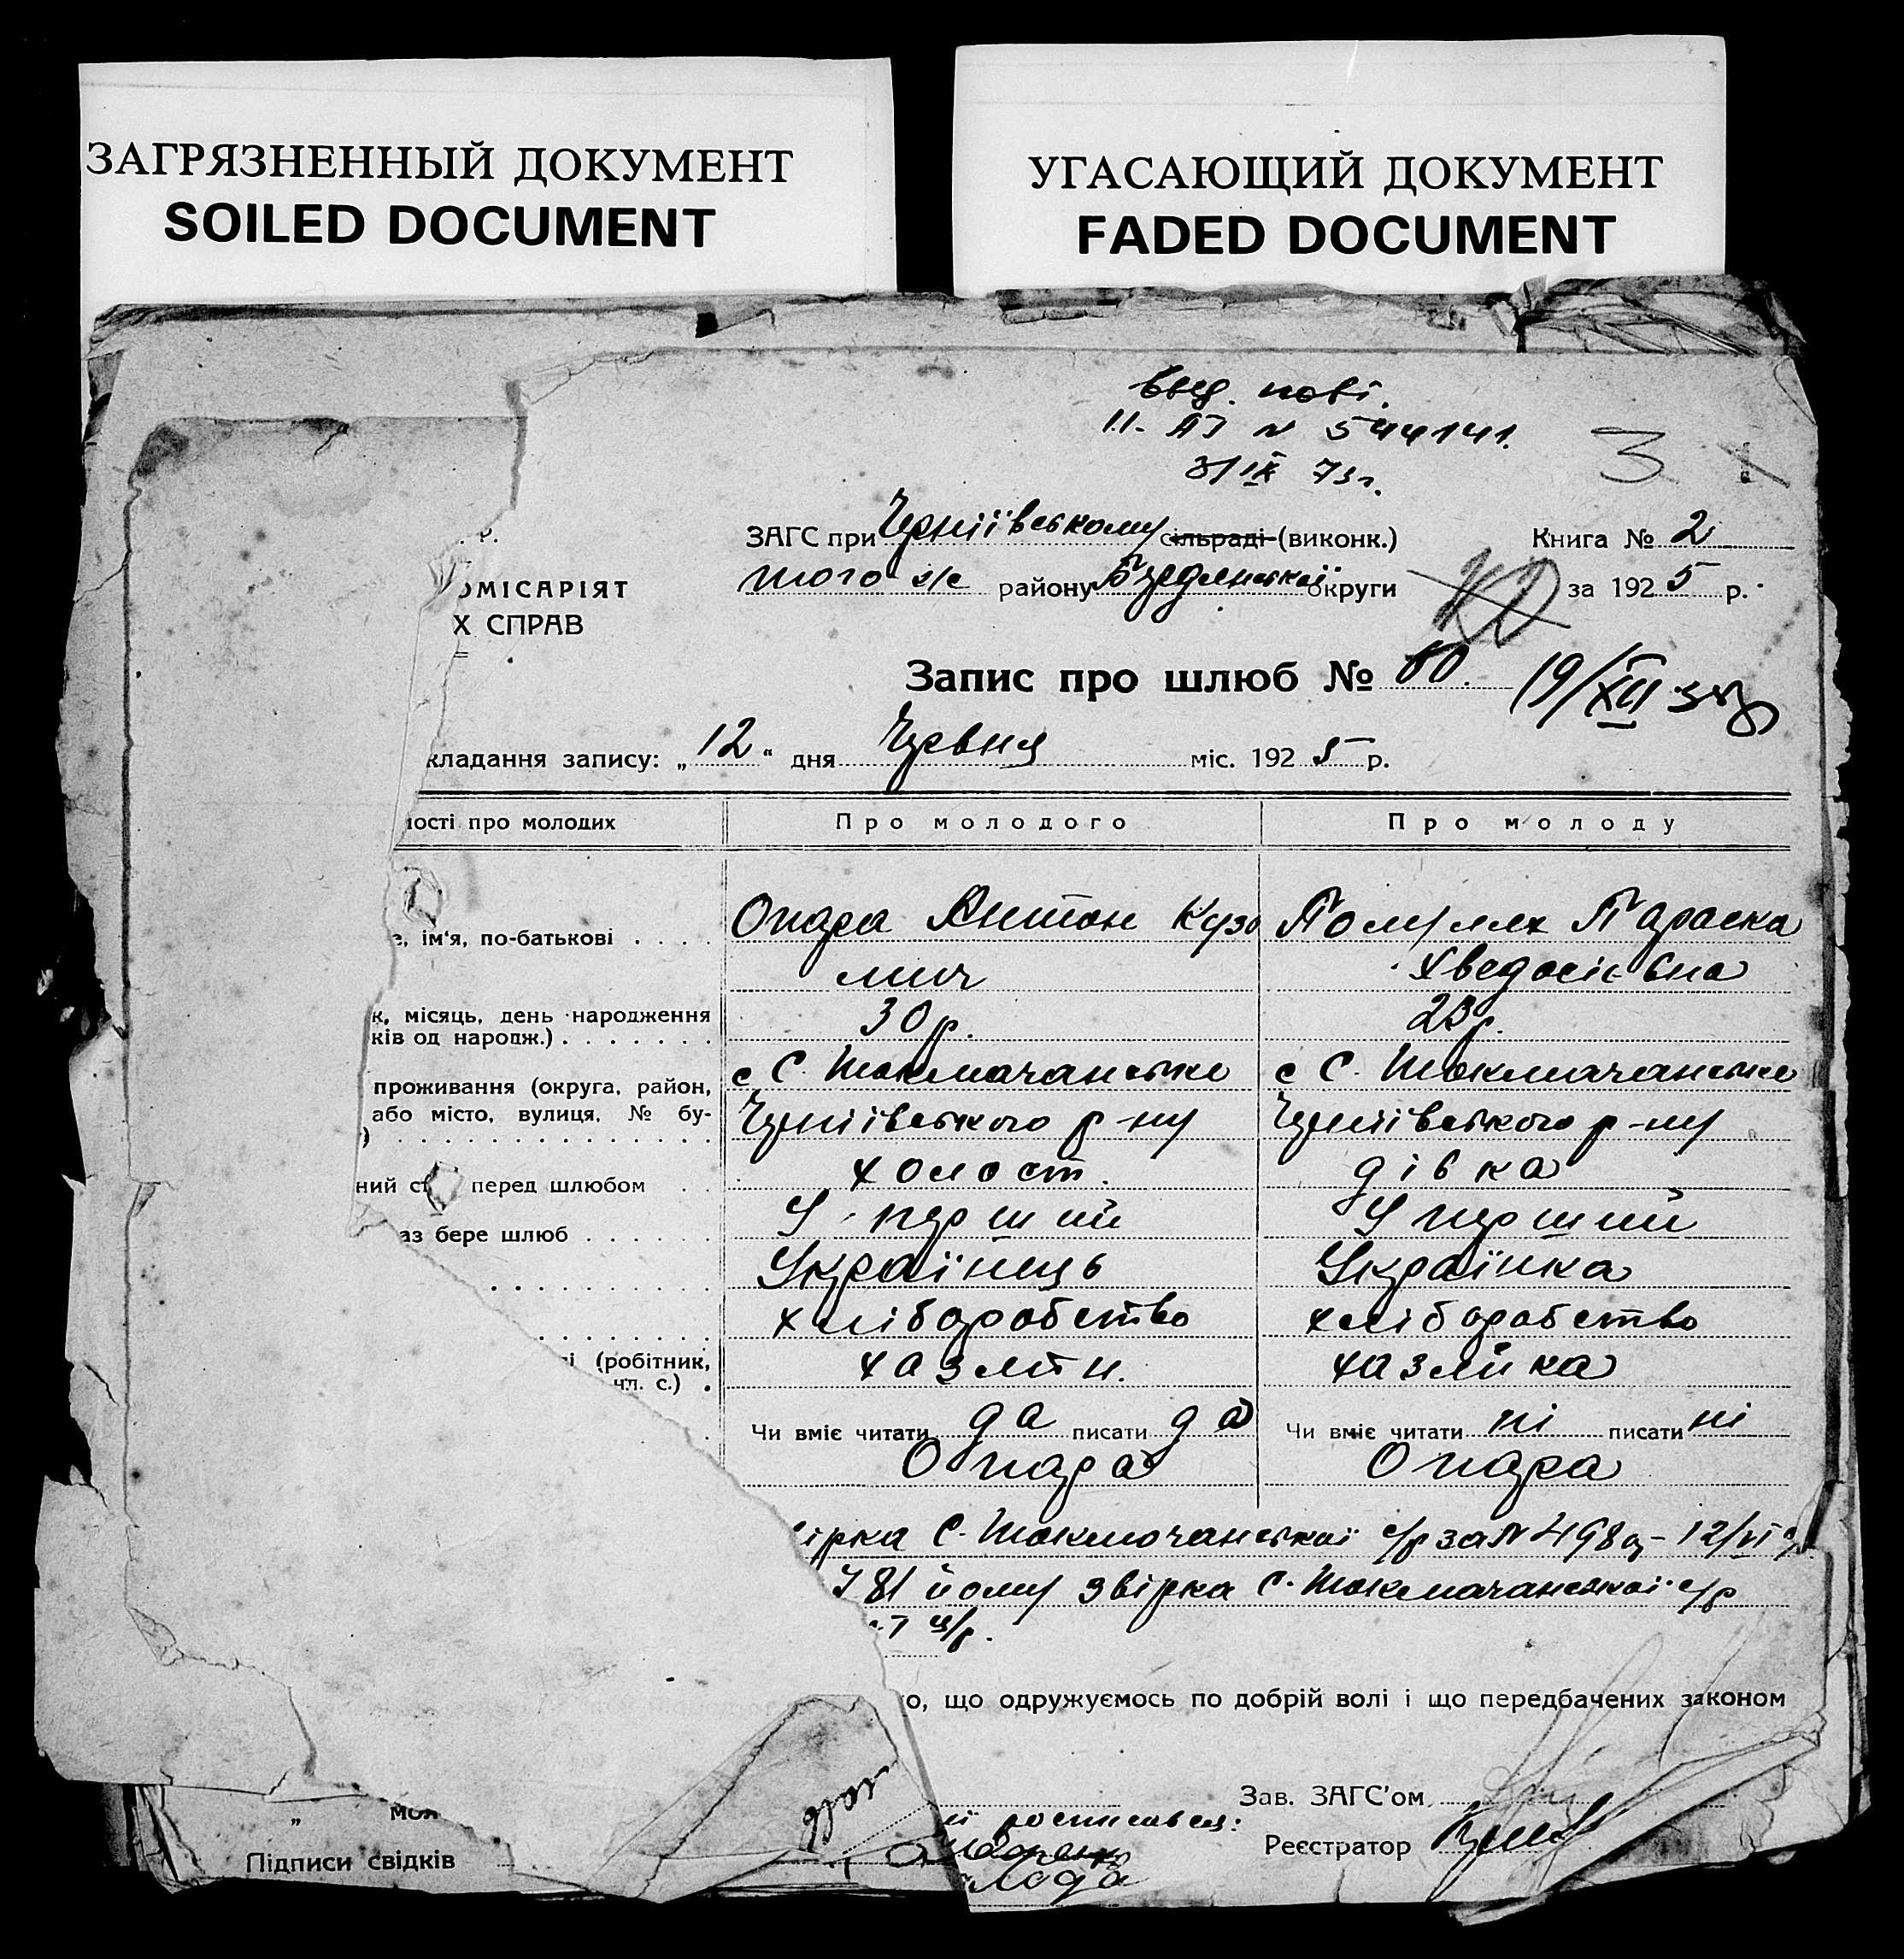 ЗАГРЯЗНЕННЫЙ ДОКУМЕНТ
SOILED DOCUMENT
УГАСАЮЩИЙ ДОКУМЕНТ
FADED DOCUMENT
N 544141.
IX 73г.
3
ЗАГС при сільраді (виконк.)
Книга № 2
того ж/с району округи
за 1925 р.
ОМІСАРІЯТ
Х СПРАВ
Запис про шлюб № 60. 19/XII
кладання запису: „12“ дня Червня міс. 1925 р.
ності про молодих
Про молодого
Про молоду
е, ім'я, по-батькові
Опара Антон Кузь
мич
Параска
Хведосієвна
к, місяць, день народження
ків од народж.)
30 р.
23 р.
проживання (округа, район,
або місто, вулиця, № бу-
)
с С. Токмачанське
р-ну
с С. Токмачанське
р-ну
ний ст перед шлюбом
холост.
дівка
аз бере шлюб
У перший
У перший
Українець
Українка
хліборобство
хліборобство
і (робітник,
чл. с.)
хазяїн.
хазяйка
Чи вміє читати да писати да
Чи вміє читати ні писати ні
Опара
Опара
ірка С. Токмачанської с/р за N 498 12/VI
781 йому звірка С. Токмачанської с/р
ц/р.
о, що одружуємось по добрій волі і що передбачених законом
Зав. ЗАГС'ом
„ моя
росписався:
Реєстратор
Підписи свідків